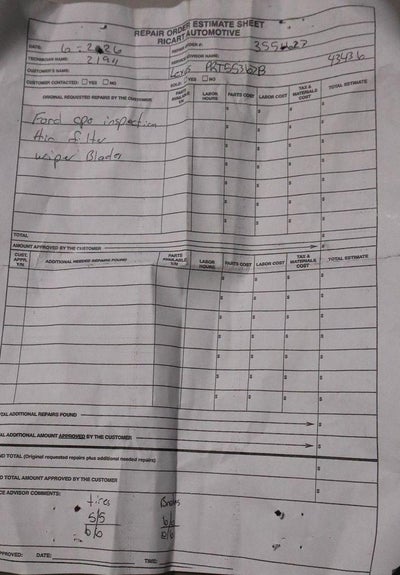 REPAIR ORDER ESTIMATE SHEET
RICART AUTOMOTIVE
DATE: 6-2626 ORDER #: 355627
TECHNICIAN NAME: 2194 ADVISOR NAME: 43436
CUSTOMER'S NAME:
CUSTOMER CONTACTED: YES NO SOLD: YES NO
ORIGINAL REQUESTED REPAIRS BY THE CUSTOMER PARTS AVAILABLE Y/N LABOR HOURS PARTS COST LABOR COST TAX & MATERIALS COST TOTAL ESTIMATE
Ford cpo inspection
filter
wiper Blades
TOTAL
AMOUNT APPROVED BY THE CUSTOMER
CUST. APPR. Y/N ADDITIONAL NEEDED REPAIRS FOUND PARTS AVAILABLE Y/N LABOR HOURS PARTS COST LABOR COST TAX & MATERIALS COST TOTAL ESTIMATE
ADDITIONAL REPAIRS FOUND
ADDITIONAL AMOUNT APPROVED BY THE CUSTOMER
TOTAL (Original requested repairs plus additional needed repairs)
TOTAL AMOUNT APPROVED BY THE CUSTOMER
ADVISOR COMMENTS:
tires
5/5 6/6
6/6
DATE: TIME: